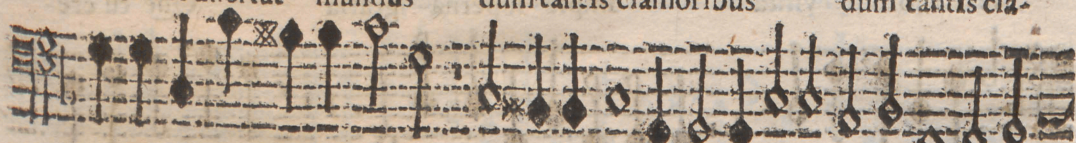 mundus dum tantis clamoribus dum tantis cla-